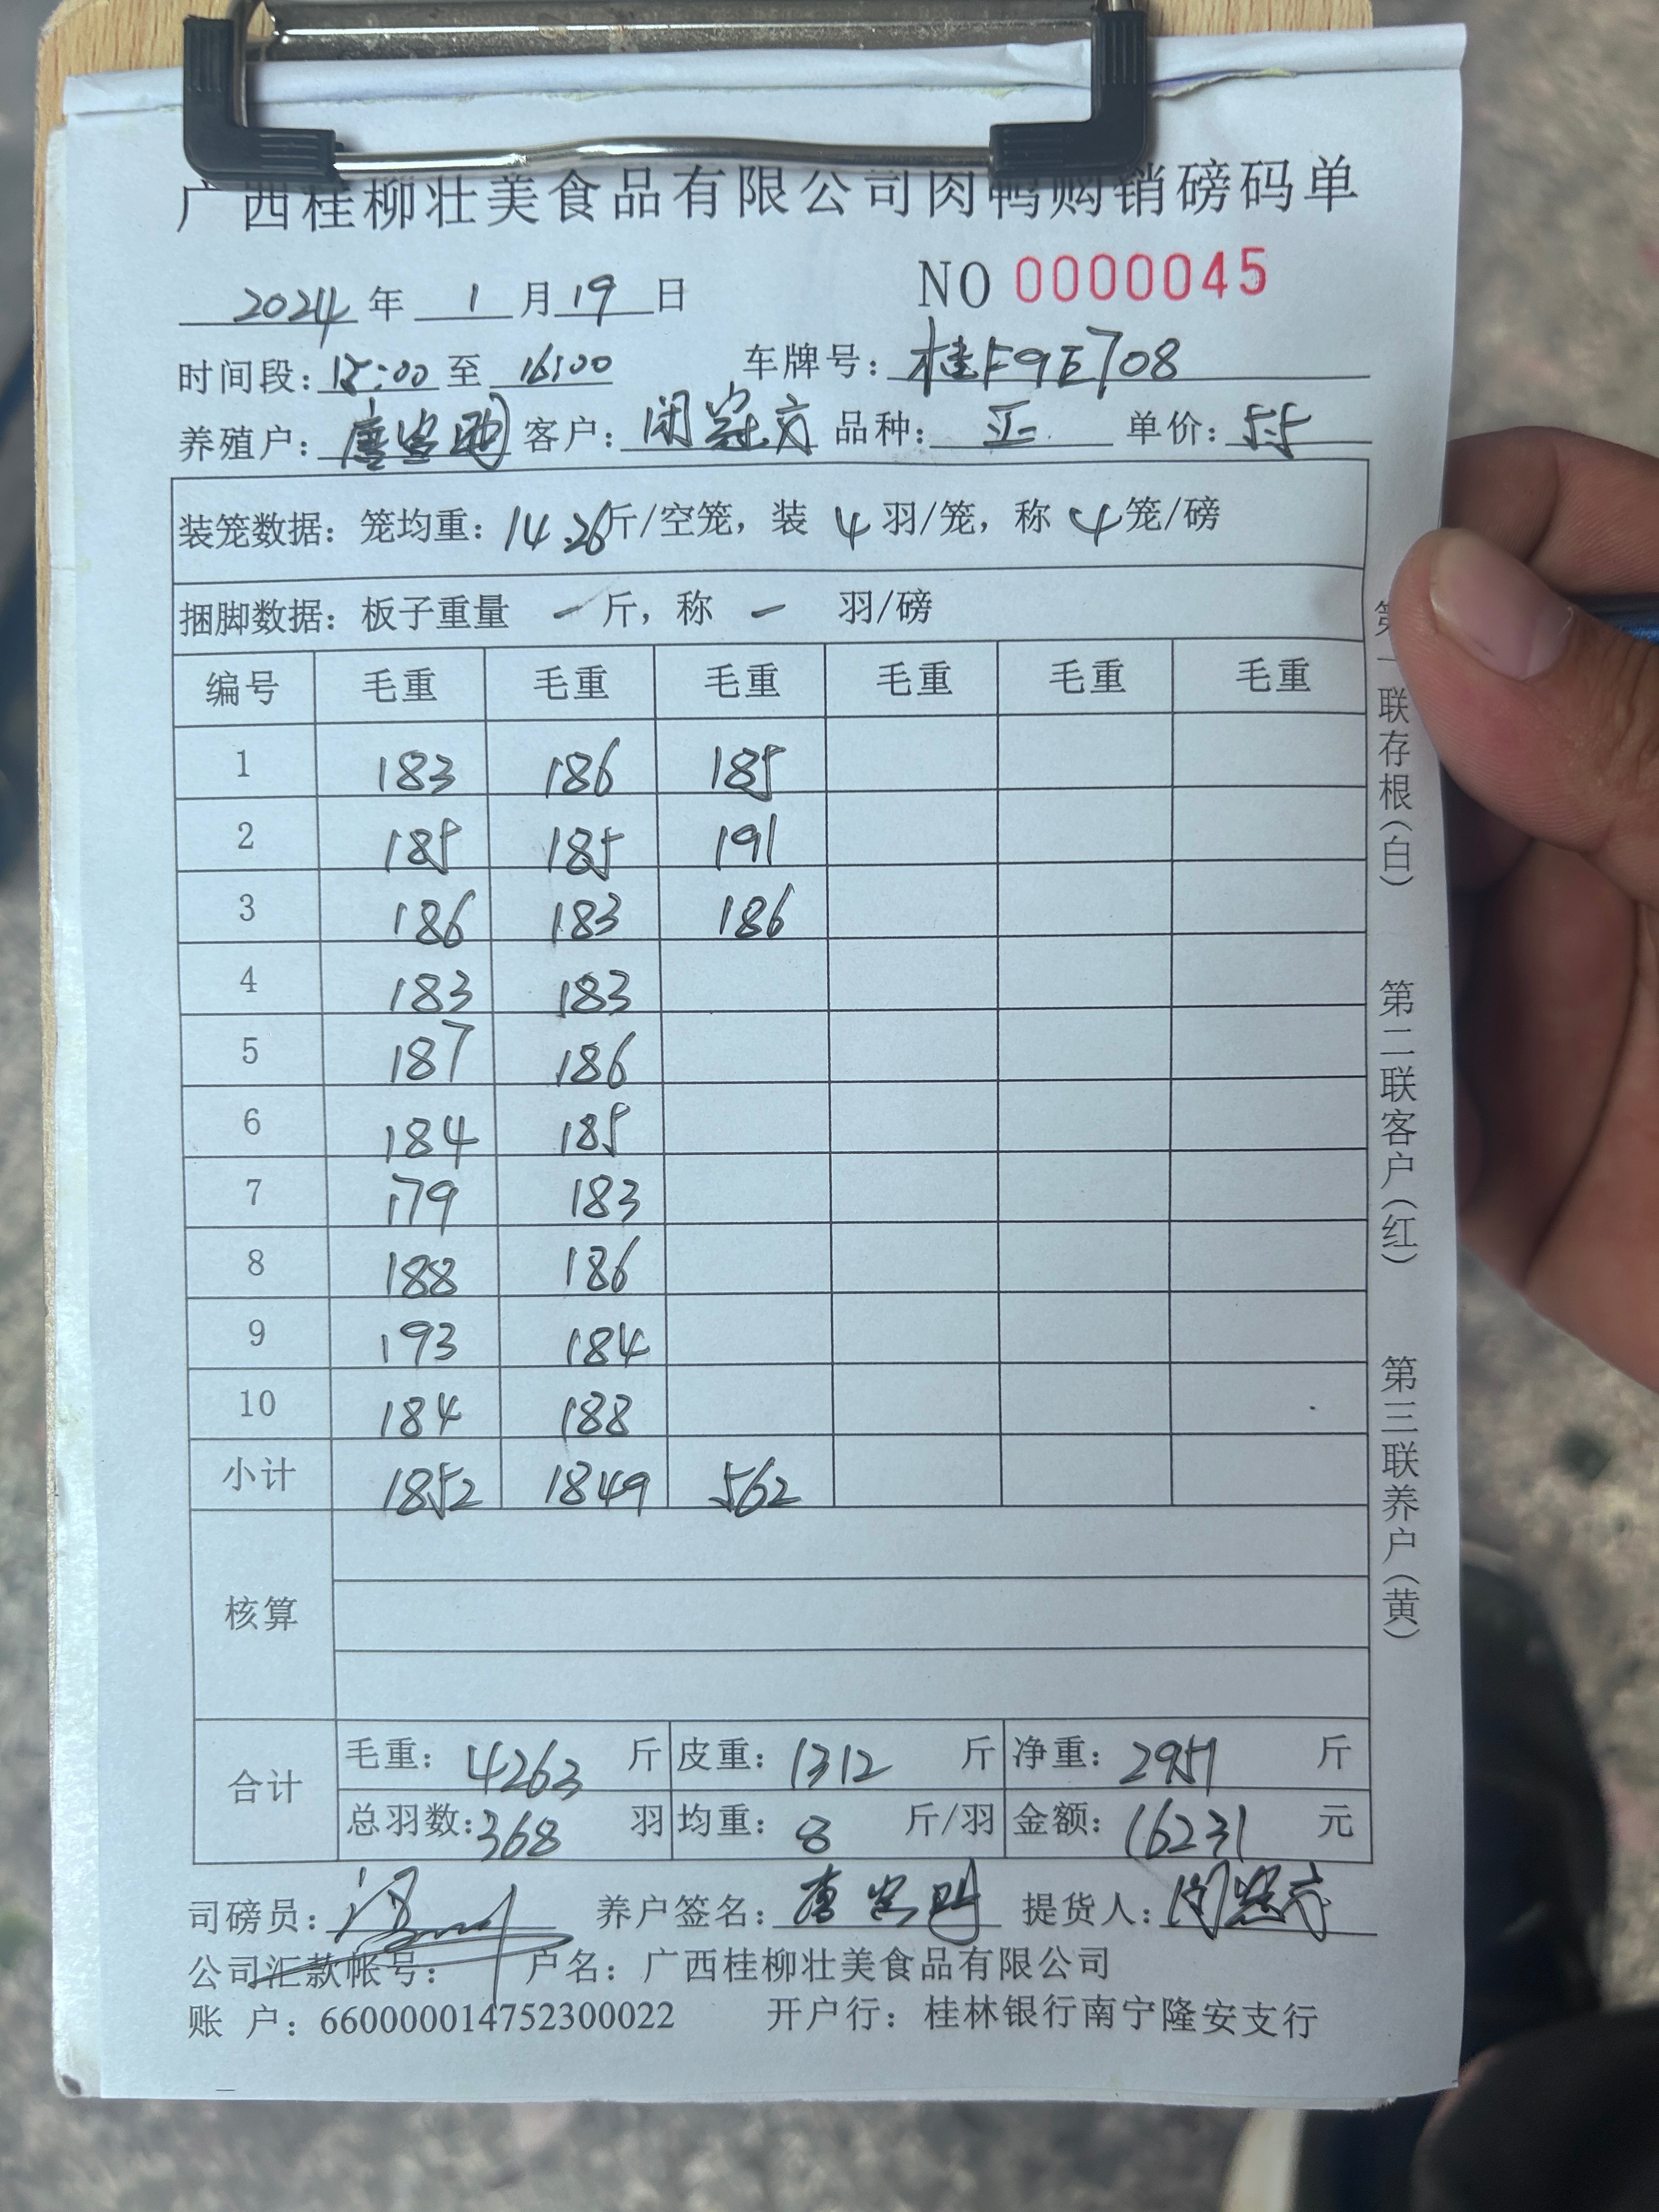 广西桂柳壮美食品有限公司肉鸭购销磅码单
2024年 1月19日 NO 0000045
时间段:15:00至 16:00 车牌号:桂F9E708
养殖户: 客户:闭 品种: 单价:5.5
装笼数据:笼均重:14.26斤/空笼,装 4 羽/笼,称 4 笼/磅
捆脚数据:板子重量 一 斤,称 一 羽/磅
编号 毛重 毛重 毛重 毛重 毛重 毛重
1 183 186 185
2 185 185 191
3 186 183 186
4 183 183
5 187 186
6 184 185
7 179 183
8 188 186
9 193 184
10 184 188
小计 1852 1849 562
核算
合计 毛重:4263 斤 皮重:1312 斤 净重:2951 斤
总羽数:368 羽 均重:8 斤/羽 金额:16231 元
司磅员: 养户签名: 提货人:闭
公司汇款帐号: 户名:广西桂柳壮美食品有限公司
账 户:660000014752300022 开户行:桂林银行南宁隆安支行
第一联存根(白) 第二联客户(红) 第三联养户(黄)